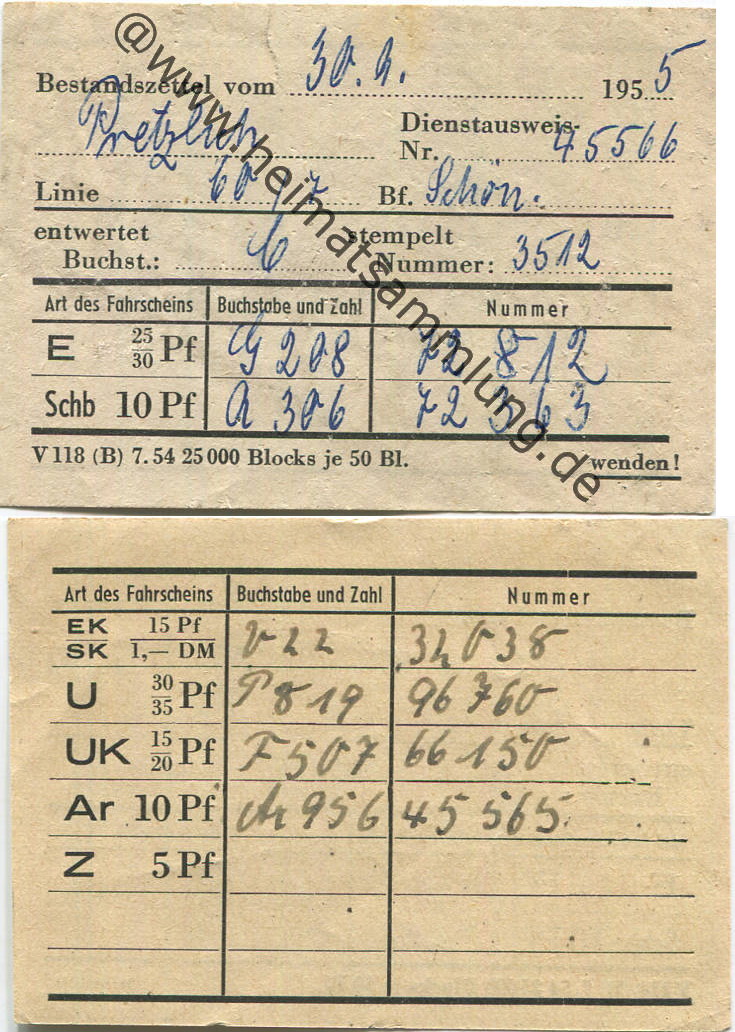 Bestandszettel vom 30.9. 1955
Dienstausweis-
Nr. 45566
Linie 60 Bf. Schön.
entwertet stempelt
Buchst.: C Nummer: 3512
Art des Fahrscheins Buchstabe und Zahl Nummer
E 25/30 Pf G 208 72 812
Schb 10 Pf A 306 72 363
V 118 (B) 7. 54 25 000 Blocks je 50 Bl. wenden!
@www.heimatsammlung.de
Art des Fahrscheins Buchstabe und Zahl Nummer
EK 15 Pf
SK 1,— DM V 22 32 038
U 30/35 Pf P 819 96 760
UK 15/20 Pf F 507 66 150
Ar 10 Pf Ar 956 45 565
Z 5 Pf